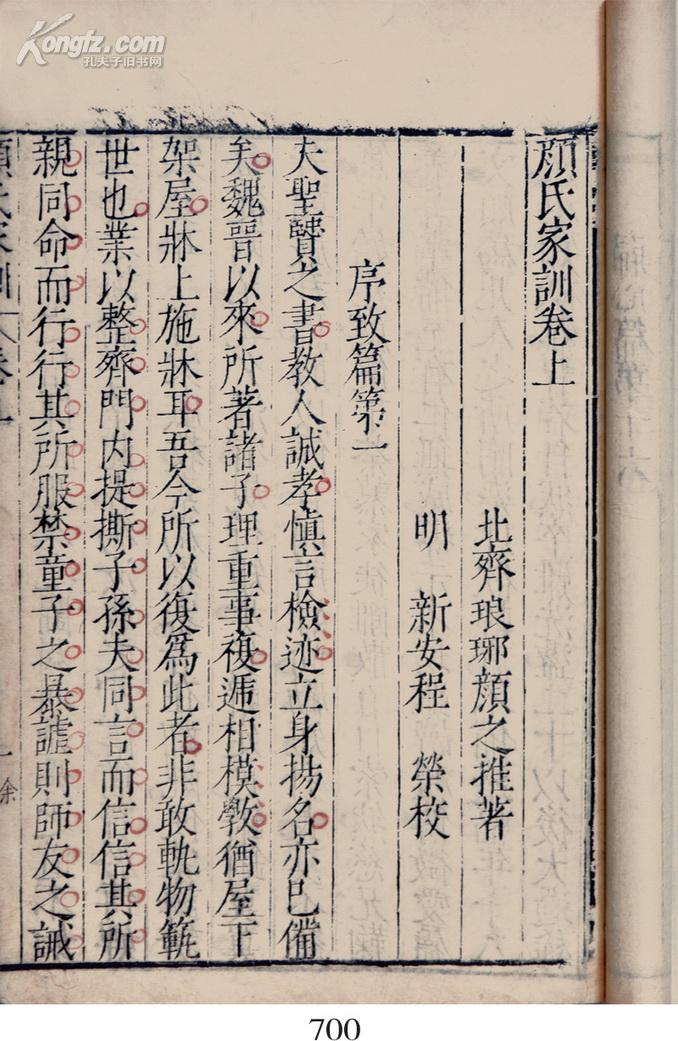 Kongfz.com
孔夫子旧书网
顔氏家訓卷上
北齊琅琊顔之推著
明 新安程 榮校
序致篇第一
夫聖賢之書教人誠孝慎言檢迹立身揚名亦已備
矣魏晉以來所著諸子理重事複遞相模斆猶屋下
架屋牀上施牀耳吾今所以復爲此者非敢軌物範
世也業以整齊門内提撕子孫夫同言而信信其所
親同命而行行其所服禁童子之暴謔則師友之誡
一 余
700